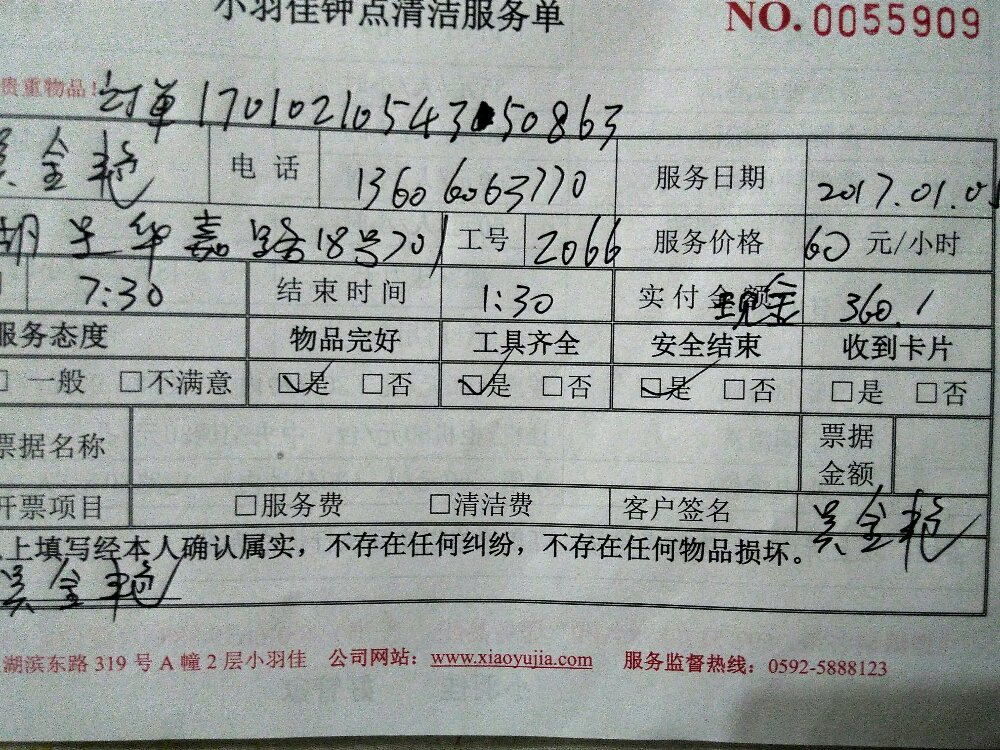 小羽佳钟点清洁服务单 NO. 0055909
贵重物品！订单 17010210543050863
吴金艳 电话 13606063770 服务日期 2017.01.0
华嘉路18号701 工号 2066 服务价格 60 元/小时
7:30 结束时间 1:30 实付金额 现金 360.
服务态度 物品完好 工具齐全 安全结束 收到卡片
□一般 □不满意 ☑是 □否 ☑是 □否 ☑是 □否 □是 □否
票据名称 票据金额
开票项目 □服务费 □清洁费 客户签名 吴金艳
上填写经本人确认属实，不存在任何纠纷，不存在任何物品损坏。
吴金艳
湖滨东路 319 号 A 幢 2 层小羽佳 公司网站：www.xiaoyujia.com 服务监督热线：0592-5888123